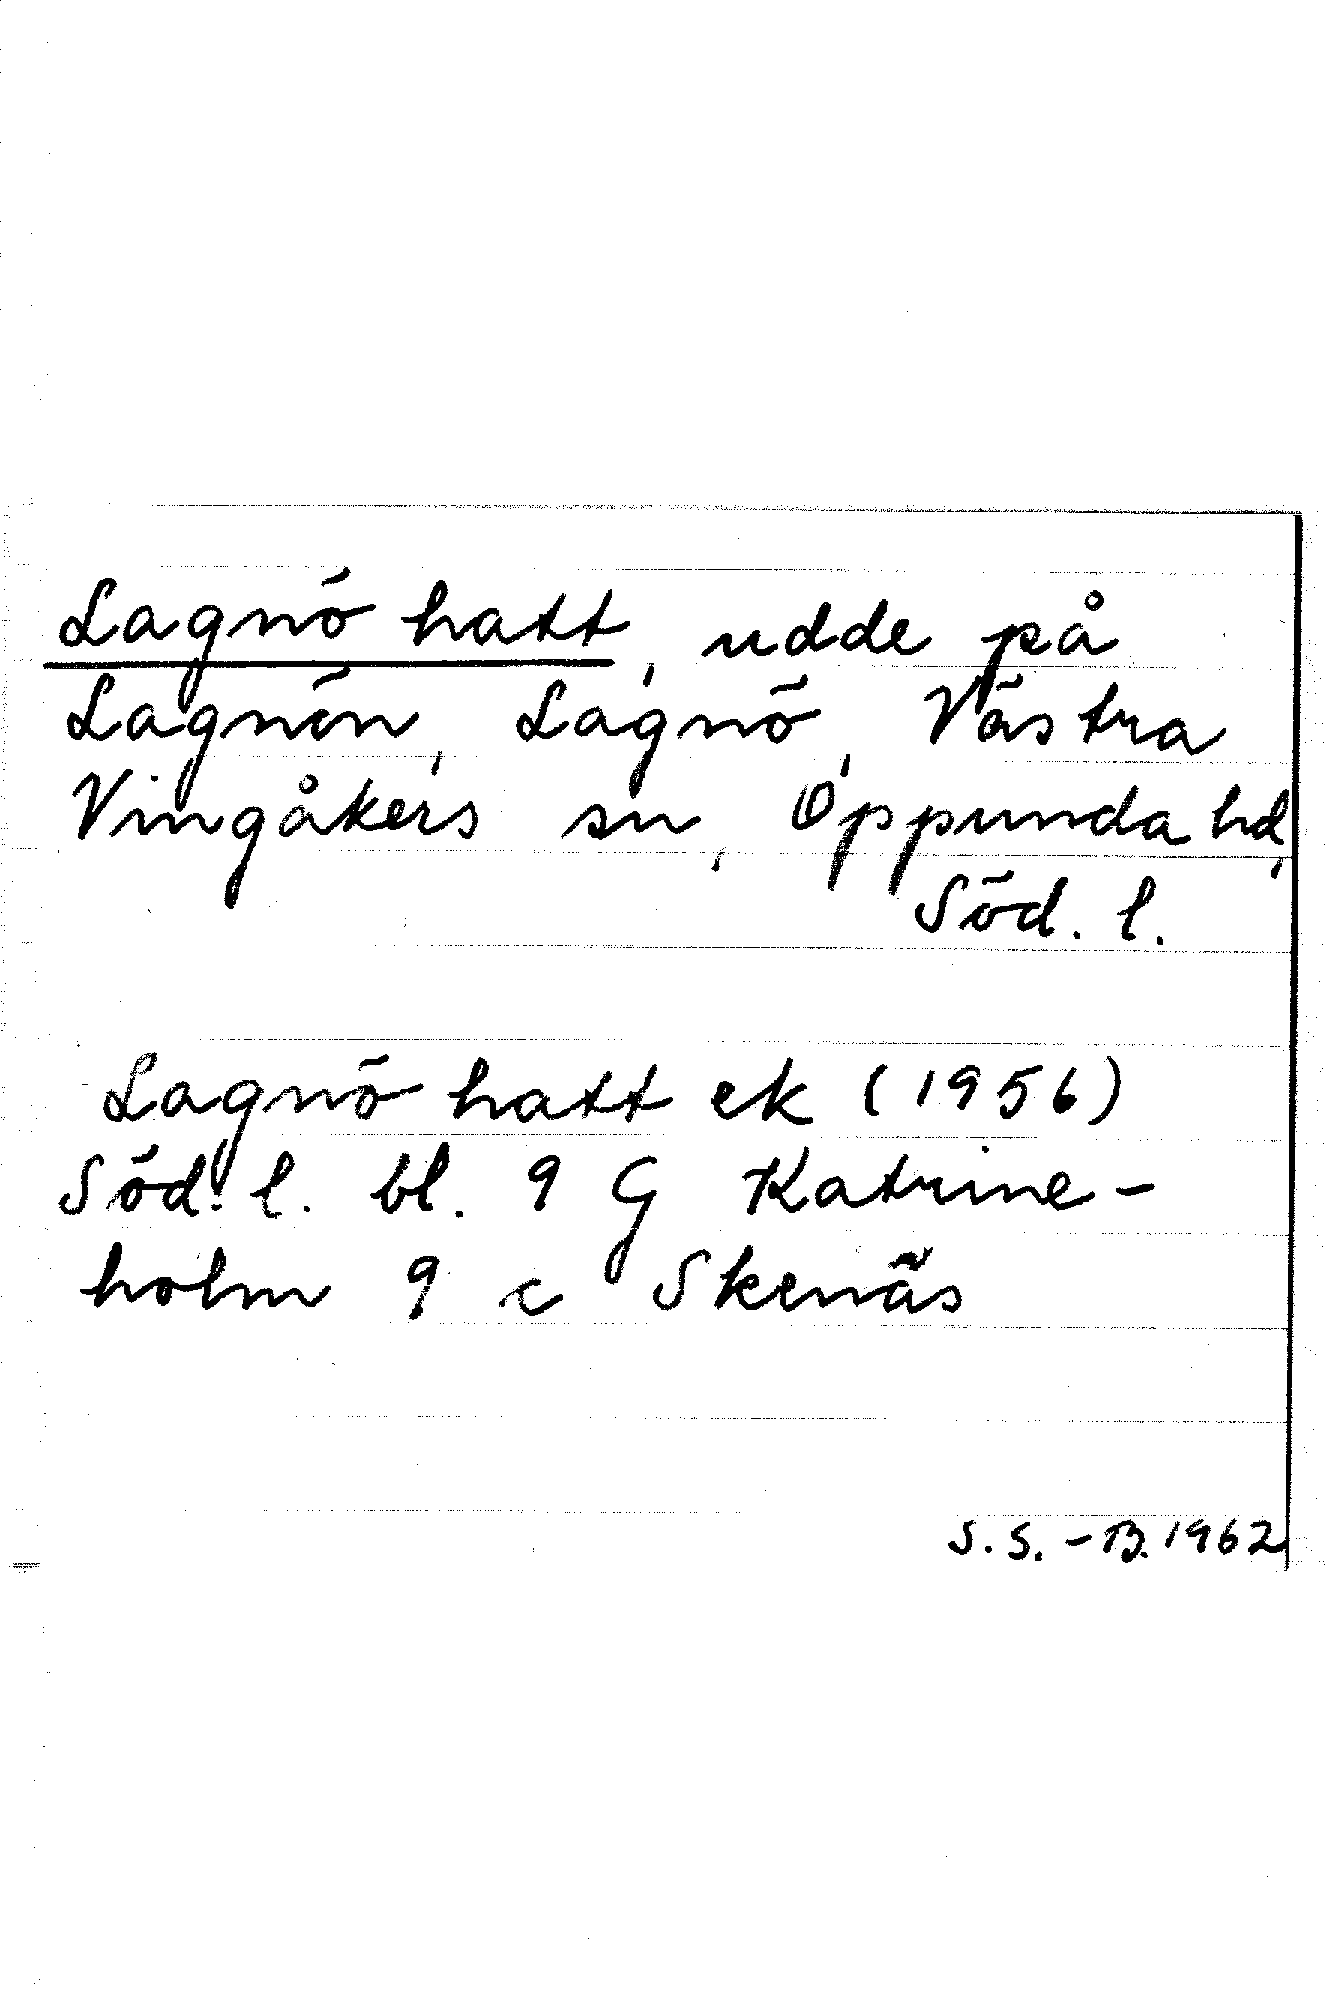 Lagnö hatt, udde på
Lagnön, Lagnö, Västra
Vingåkers sn, Oppunda hd,
Söd. l.
Lagnö hatt ek (1956)
Söd. l. bl. 9 G Katrine-
holm 9 c Skenäs
S. S. - B. 1962